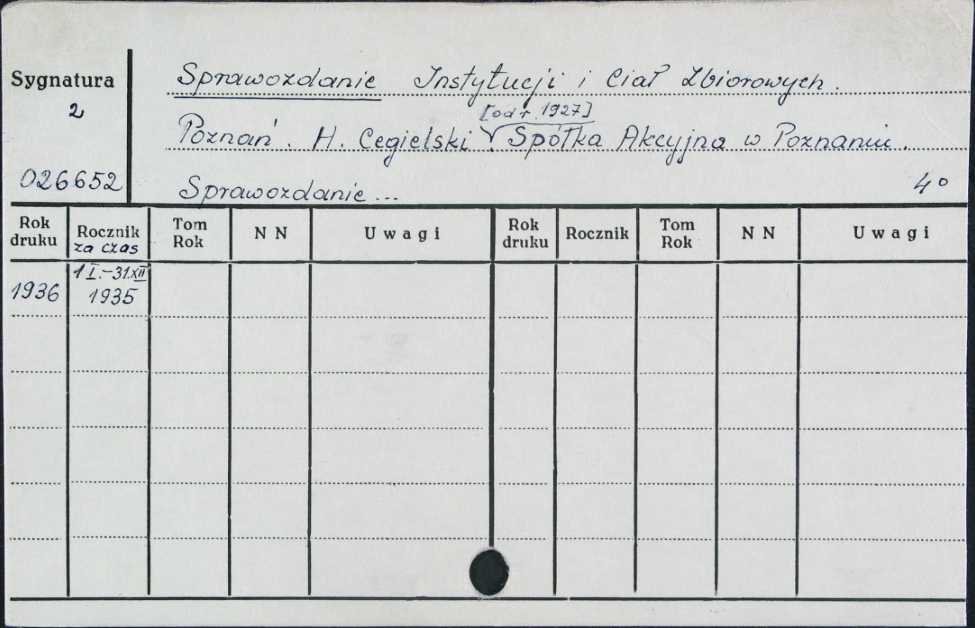 Sygnatura
2
026652
Sprawozdanie Instytucji i Ciał Zbiorowych.
[od r. 1927]
Poznań. H. Cegielski. Spółka Akcyjna w Poznaniu.
Sprawozdanie...
4°
Rok druku Rocznik za czas Tom Rok N N Uwagi Rok druku Rocznik Tom Rok N N Uwagi
1936 1 I.-31.XII 1935